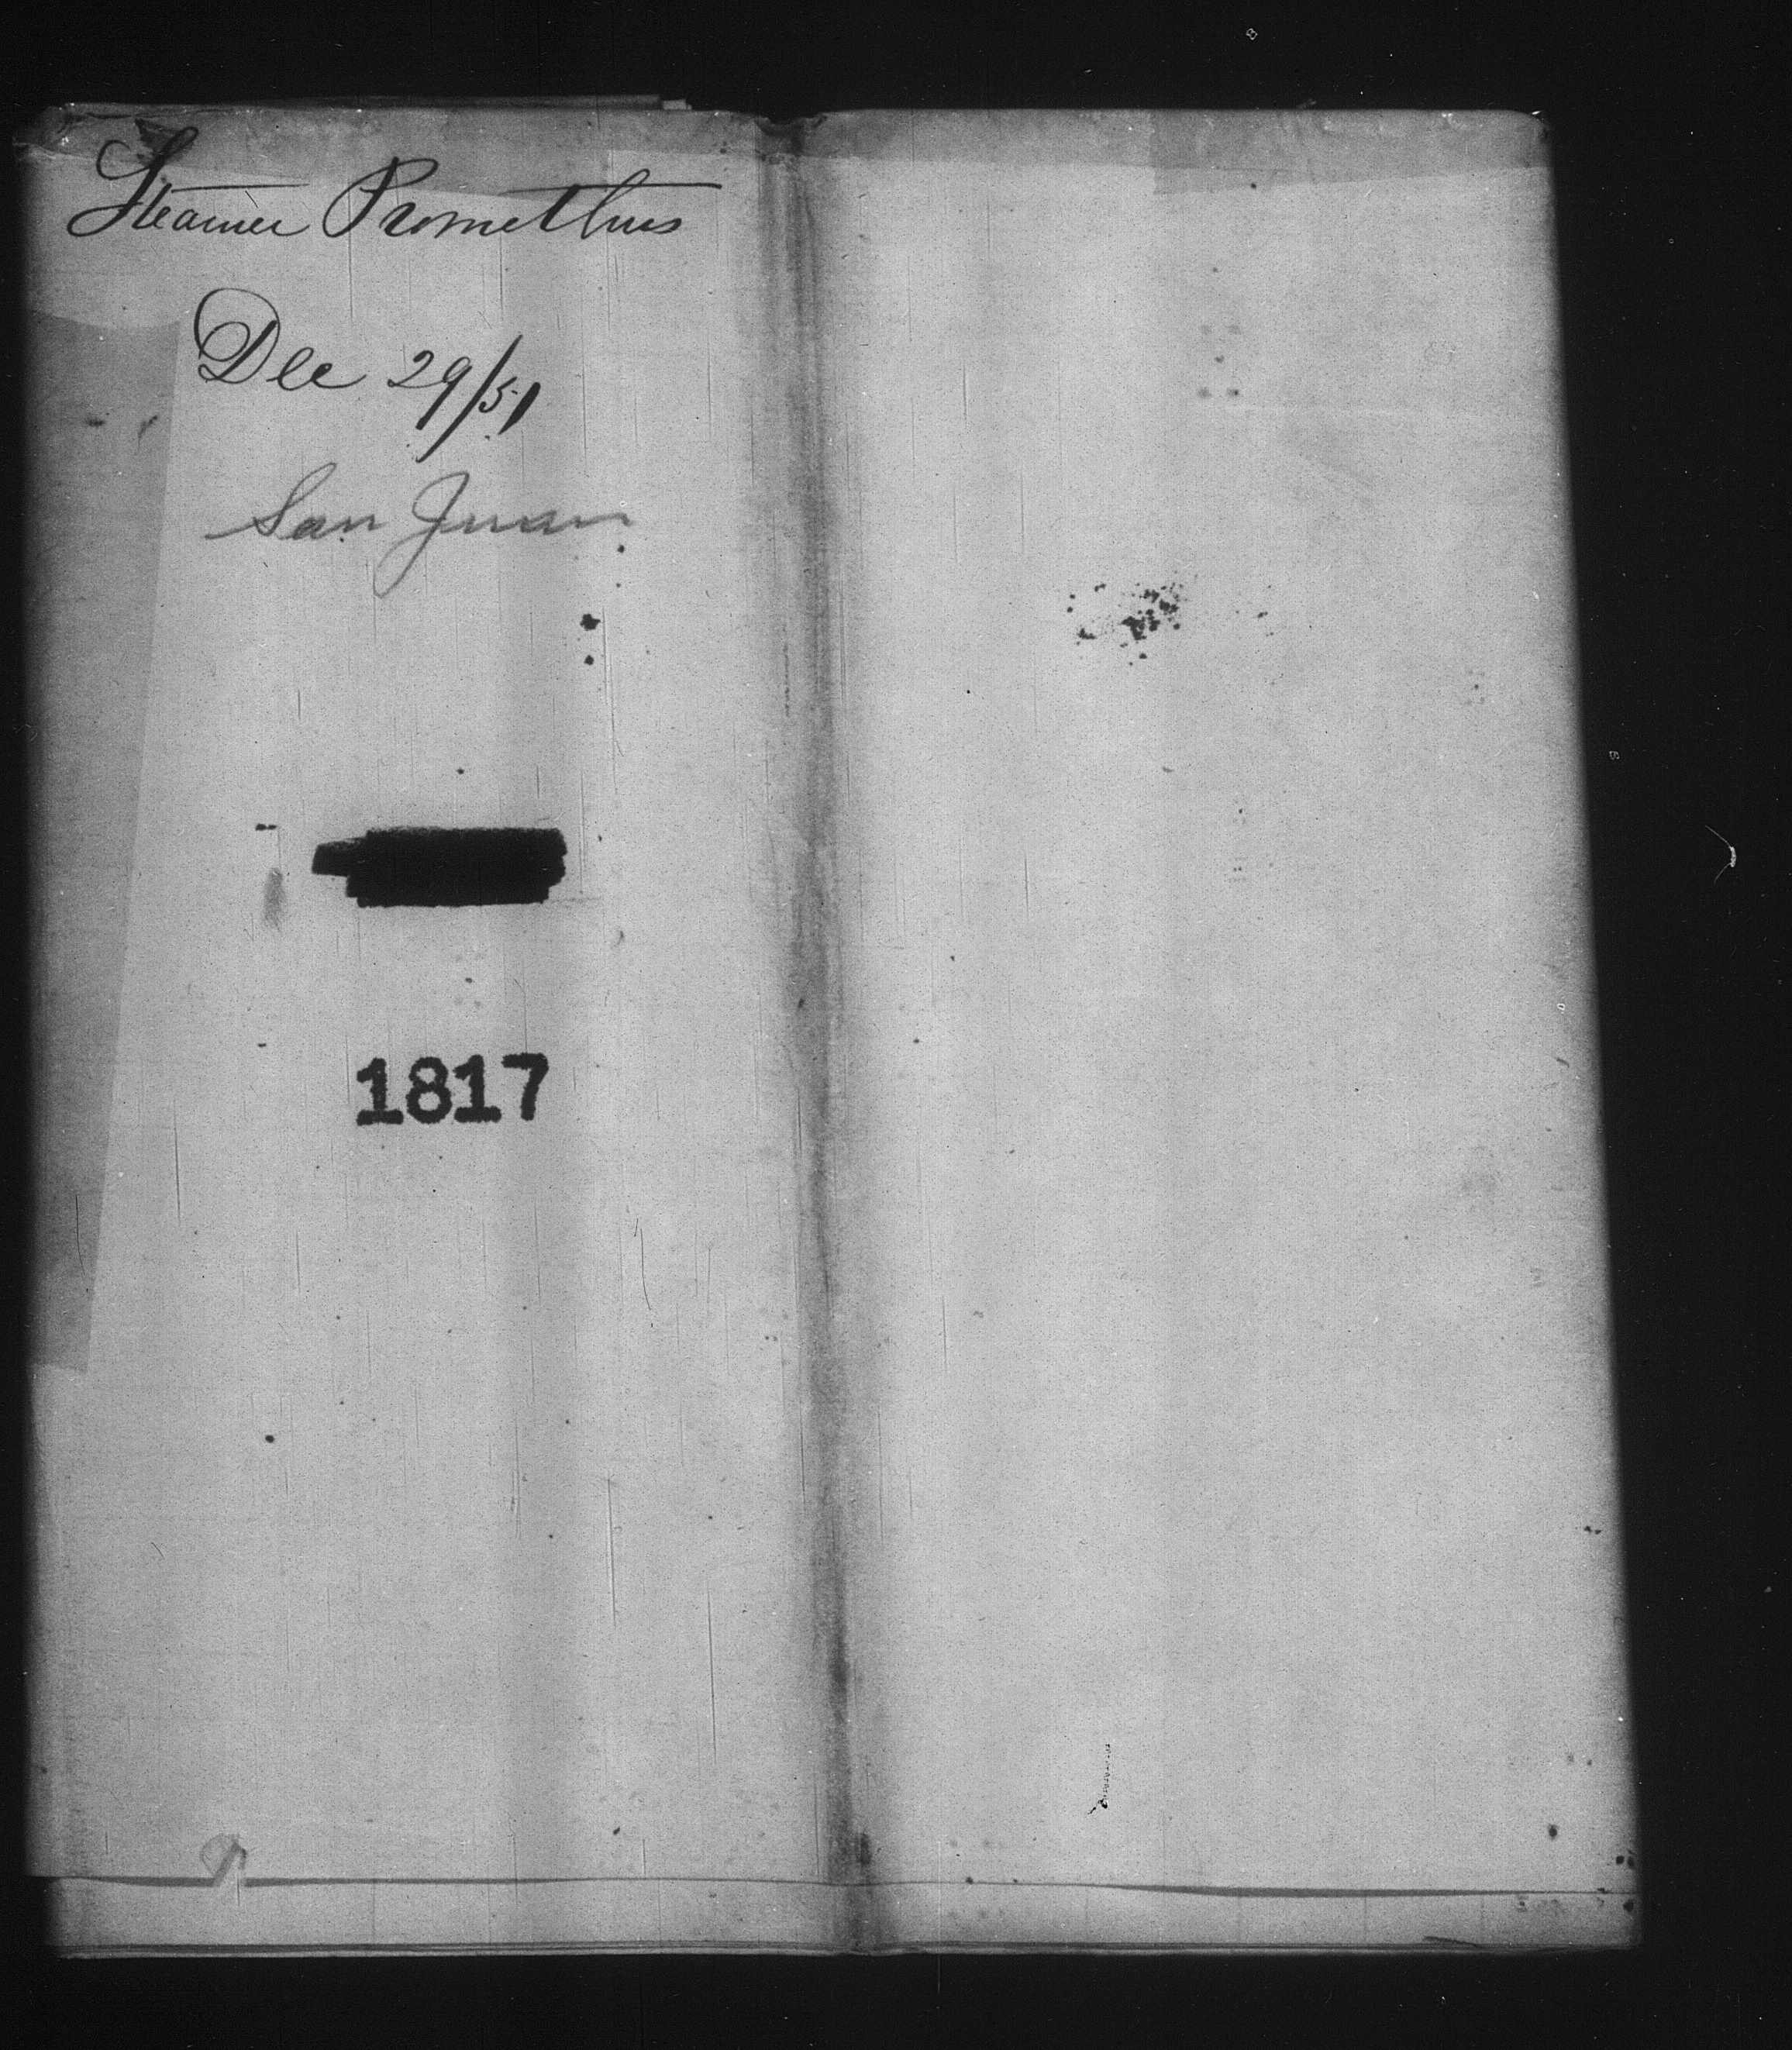 Steamer Promethus
Dec 29/51
San Juan
1817